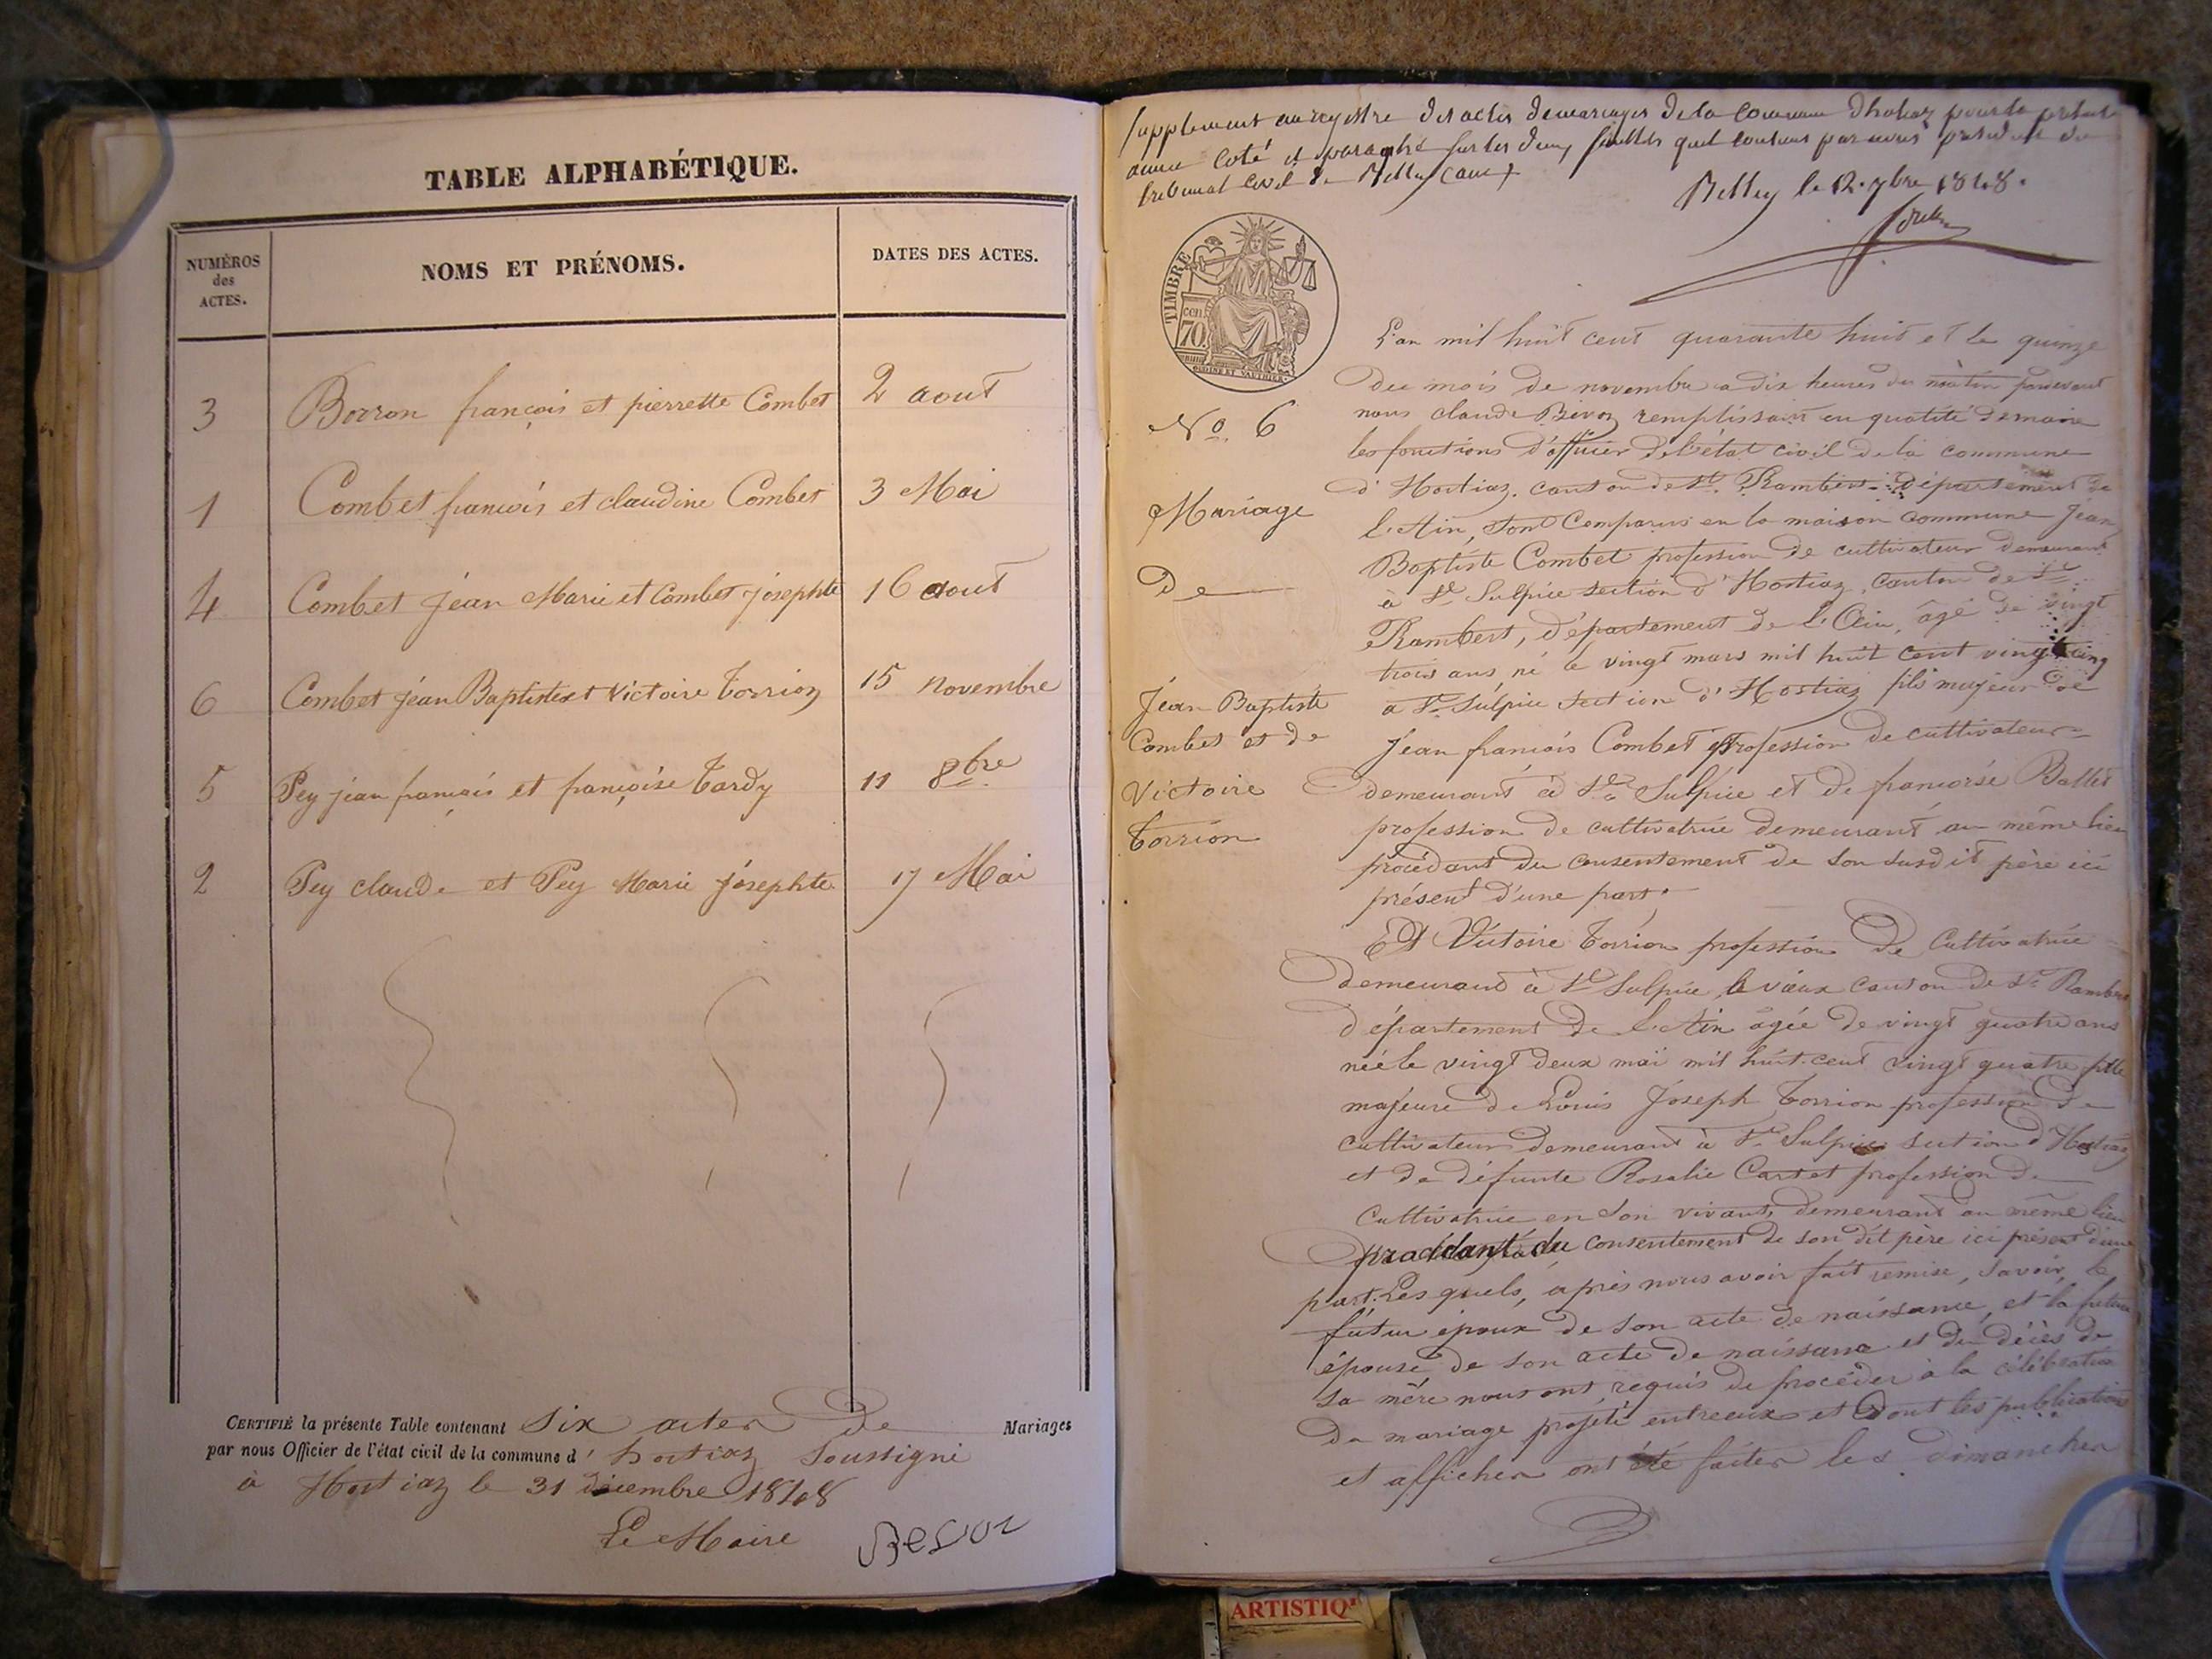 TABLE ALPHABÉTIQUE.
NUMÉROS
des
ACTES.
NOMS ET PRÉNOMS.
DATES DES ACTES.
3 Borron françois et pierrette Combet 2 aout
1 Combet francois et claudine Combet 3 Mai
4 Combet jean Marie et Combet josephte 16 aout
6 Combet jean Baptiste et Victoire Torrion 15 novembre
5 Pey jean francais et françoise Tardy 11 8bre
2 Pey claude et Pey Marie josephte 17 Mai
CERTIFIÉ la présente Table contenant Six actes de Mariages
par nous Officier de l'état civil de la commune d' hostiaz Soussigné
à Hostiaz le 31 décembre 1848
Le Maire Bevoz
Supplement au registre des actes de mariages de la commune dhostiaz pour la présente
année coté et paraphé sur les deux feuillets quil contient par nous president du
tribunal civil de Belley
Belley le 12. 9bre 1848.
TIMBRE
cen.
70.
No. 6
Mariage
De
Jean Baptiste
Combet et de
Victoire
Torrion
L'an mil huit cent quarante huit et le quinze
du mois de novembre a dix heures du matin pardevant
nous claude Bevoz remplissant en qualité de maire
les fonctions d'officier de l'état civil de la commune
d'Hostiaz. canton de St. Rambert département de
l'Ain, sont Comparus en la maison commune Jean
Baptiste Combet profession de cultivateur demeurant
à St Sulpice section d'Hostiaz, canton de St
Rambert, département de l'Ain, âgé de vingt
trois ans, né le vingt mars mil huit cent vingt cinq
a St. Sulpice section d'Hostiaz fils majeur de
Jean francois Combet profession de cultivateur
demeurant à St. Sulpice et de francoise Ballet
profession de cultivatrice demeurant au même lieu
procédant du consentement de son susdit père ici
présent d'une part,
Et Victoire Torrion profession De Cultivatrice
demeurant à St Sulpice le vieux canton de St. Rambert
département de l'Ain âgée de vingt quatre ans
née le vingt deux mai mil huit cent vingt quatre fille
majeure de Louis Joseph Torrion profession de
cultivateur demeurant à St. Sulpice section d'Hostiaz
et de défunte Rosalie Cartet profession de
Cultivatrice en son vivant demeurant au même lieu
procédant du consentement de son dit père ici présent d'une
part. Les quels, après nous avoir fait remise, savoir, le
futur époux de son acte de naissance, et la future
épouse de son acte de naissance et du décès de
sa mère nous ont requis de procéder à la célébration
du mariage projété entreeux et dont les publications
et affiches ont été faites les dimanches
ARTISTIQ